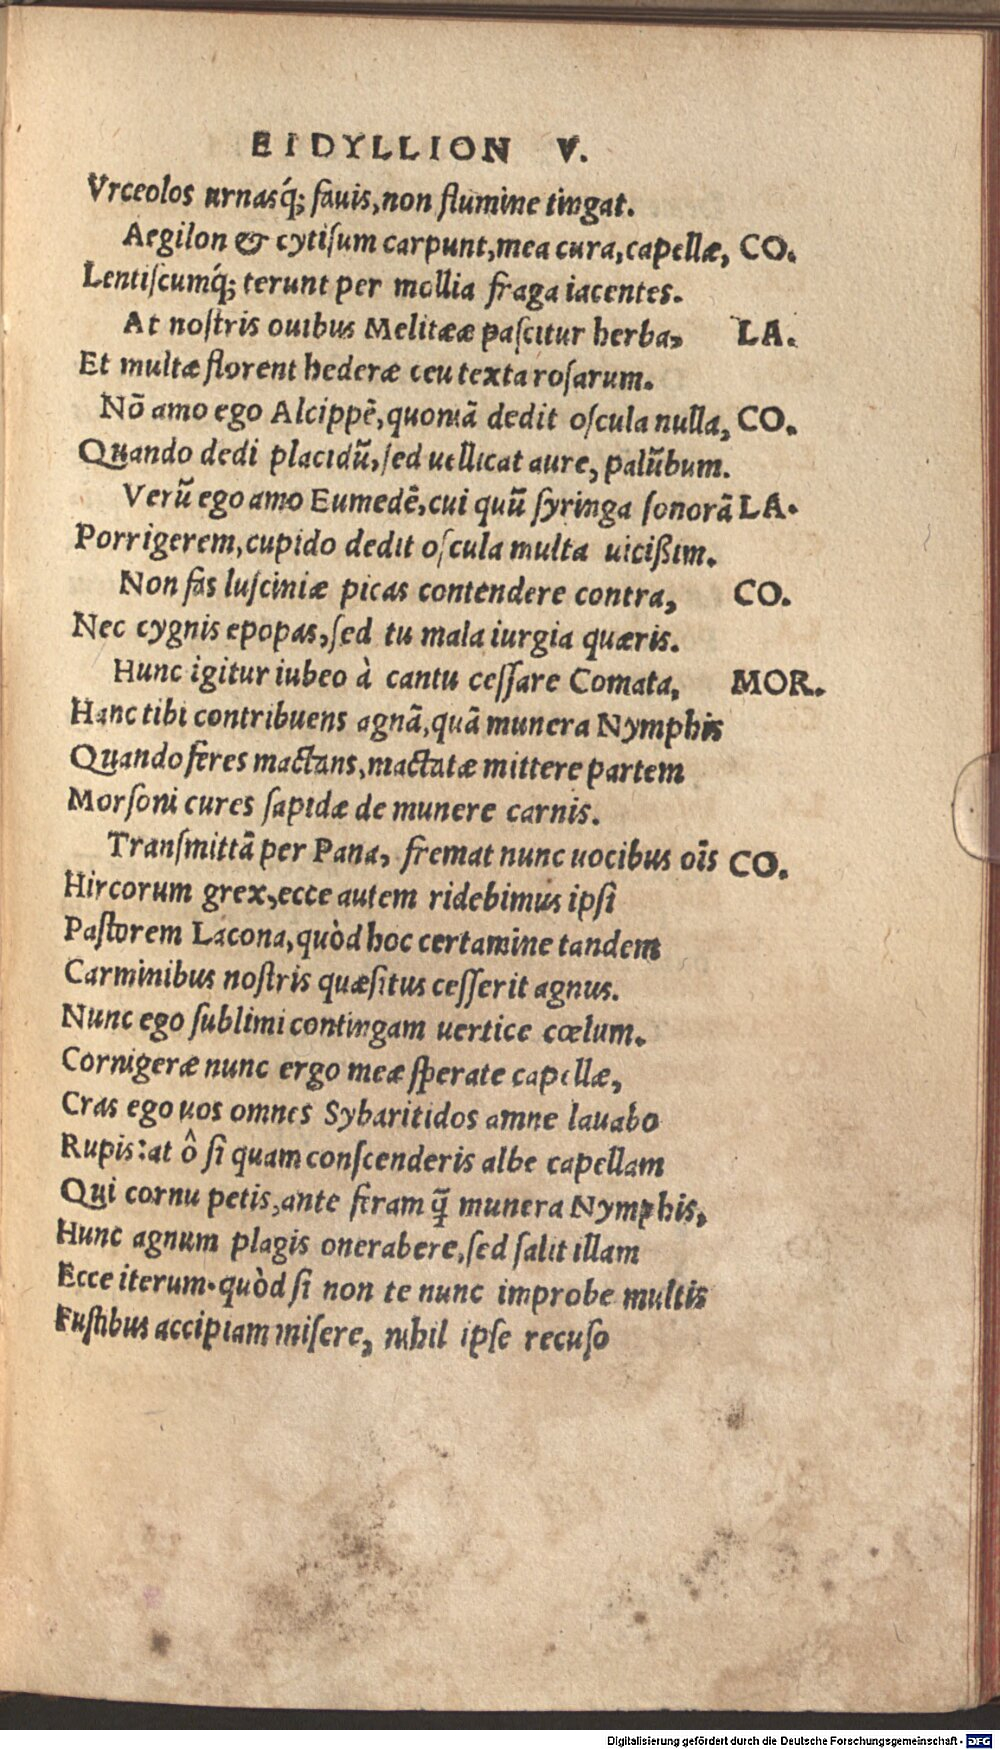 EIDYLLION V.
Vrceolos urnasq́; fauis, non flumine tingat.
Aegilon & cytiſum carpunt, mea cura, capellæ, CO.
Lentiſcumq́; terunt per mollia fraga iacentes.
At noſtris ouibus Melitææ paſcitur herba, LA.
Et multæ florent hederæ ceu texta roſarum.
Nō amo ego Alcippē, quoniā dedit oſcula nulla, CO.
Quando dedi placidū, ſed uellicat aure, palūbum.
Verū ego amo Eumedē, cui quū ſyringa ſonorā LA.
Porrigerem, cupido dedit oſcula multa uicißim.
Non fas luſciniæ picas contendere contra, CO.
Nec cygnis epopas, ſed tu mala iurgia quæris.
Hunc igitur iubeo à cantu ceſſare Comata, MOR.
Hanc tibi contribuens agnā, quā munera Nymphis
Quando feres mactans, mactatæ mittere partem
Morſoni cures ſapidæ de munere carnis.
Tranſmittā per Pana, fremat nunc uocibus oīs CO.
Hircorum grex, ecce autem ridebimus ipſi
Paſtorem Lacona, quòd hoc certamine tandem
Carminibus noſtris quæſitus ceſſerit agnus.
Nunc ego ſublimi contingam uertice cœlum.
Cornigeræ nunc ergo meæ ſperate capellæ,
Cras ego uos omnes Sybaritidos amne lauabo
Rupis: at ô ſi quam conſcenderis albe capellam
Qui cornu petis, ante feram q̄ munera Nymphis,
Hunc agnum plagis onerabere, ſed ſalit illam
Ecce iterum. quòd ſi non te nunc improbe multis
Fuſtibus accipiam miſere, nihil ipſe recuſo
Digitalisierung gefördert durch die Deutsche Forschungsgemeinschaft - DFG